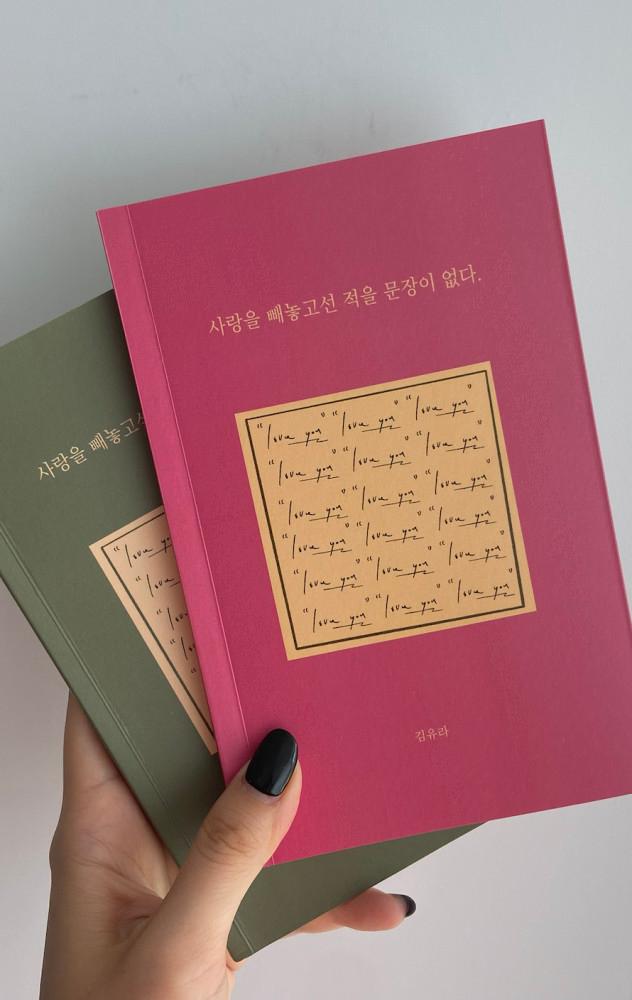 사랑을 빼놓고선 적을 문장이 없다.
“I love you” “I love you” “I love you”
“I love you” “I love you” “I love you”
“I love you” “I love you” “I love you”
“I love you” “I love you” “I love you”
“I love you” “I love you” “I love you”
“I love you” “I love you” “I love you”
김유라
사랑을 빼놓고
“I love
“I love
“I love
“I love